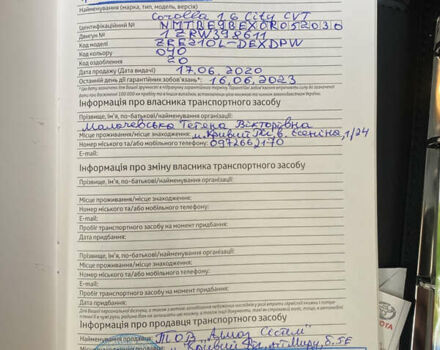 Найменування (марка, тип, модель, версія) Corolla 1.6 City CVT
Ідентифікаційний № NMTBE9BEX0R052030
Двигун № 1ZRW398611
Код моделі ZRE210L-DEXDPW
Код кольору 090
Код оздоблення 20
Дата продажу (Дата видачі) 17.06.2020
Останній день дії гарантійних зобов'язань* 16.06.2023
Інформація про власника транспортного засобу
Прізвище, ім'я, по-батькові/найменування організації:
Тетяна Вікторівна
Місце проживання/місце знаходження: м. Кривий Ріг, 1/24
Номер міського та/або мобільного телефону: 0972662170
E-mail:
Інформація про зміну власника транспортного засобу
Прізвище, ім'я, по-батькові/найменування організації:
Місце проживання/місце знаходження:
Номер міського та/або мобільного телефону:
E-mail:
Пробіг транспортного засобу на момент придбання:
Дата придбання:
Прізвище, ім'я, по-батькові/найменування організації:
Місце проживання/місце знаходження:
Номер міського та/або мобільного телефону:
E-mail:
Пробіг транспортного засобу на момент придбання:
Дата придбання:
Інформація про продавця транспортного засобу
Найменування продавця: ТОВ
Кривий Ріг